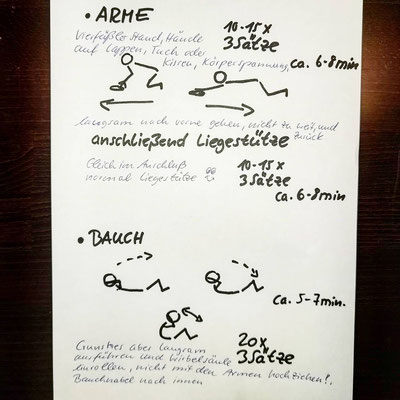 • ARME
10-15 x
Vierfüßler Stand, Hände
3 Sätze
auf Lappen, Tuch oder
Kissen, Körperspannung,
ca. 6-8 min
langsam nach vorne gehen, nicht zu weit, und
zurück
anschließend Liegestütze
Gleich im Anschluß
10-15 x
normal Liegestütze
3 Sätze
ca. 6-8 min
• BAUCH
ca. 5-7 min.
20x
3 Sätze
aber langsam
ausführen und Wirbelsäule
einrollen, nicht mit den Armen hochziehen!,
Bauchnabel nach innen